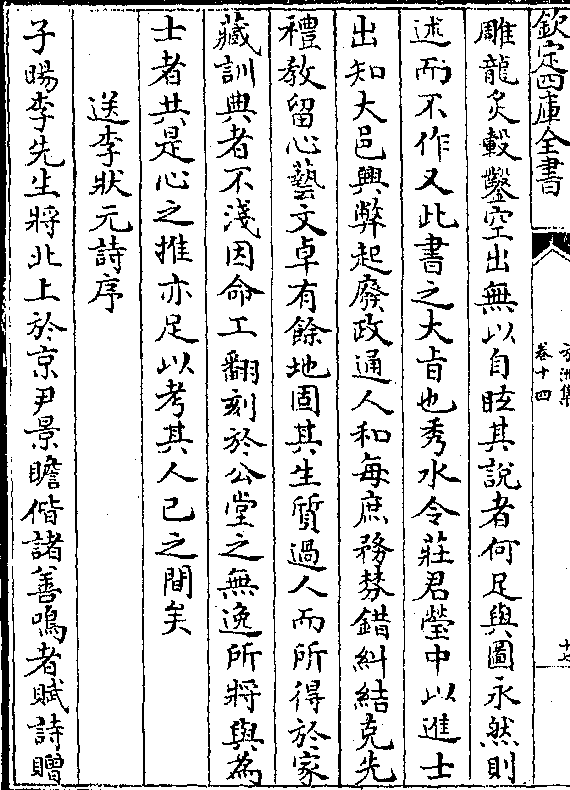 欽定四庫全書
方洲集
卷十四
十七
雕龍炙轂鑿空出無以自眩其說者何足與圖永然則
述而不作又此書之大旨也秀水令莊君瑩中以進士
出知大邑興弊起廢政通人和每庶務棼錯糾結克先
禮教留心藝文卓有餘地固其生質過人而所得於家
藏訓典者不淺因命工翻刻於公堂之無逸所將與為
士者共是心之推亦足以考其人已之間矣
送李狀元詩序
子暘李先生將北上於京尹景瞻偕諸善鳴者賦詩贈